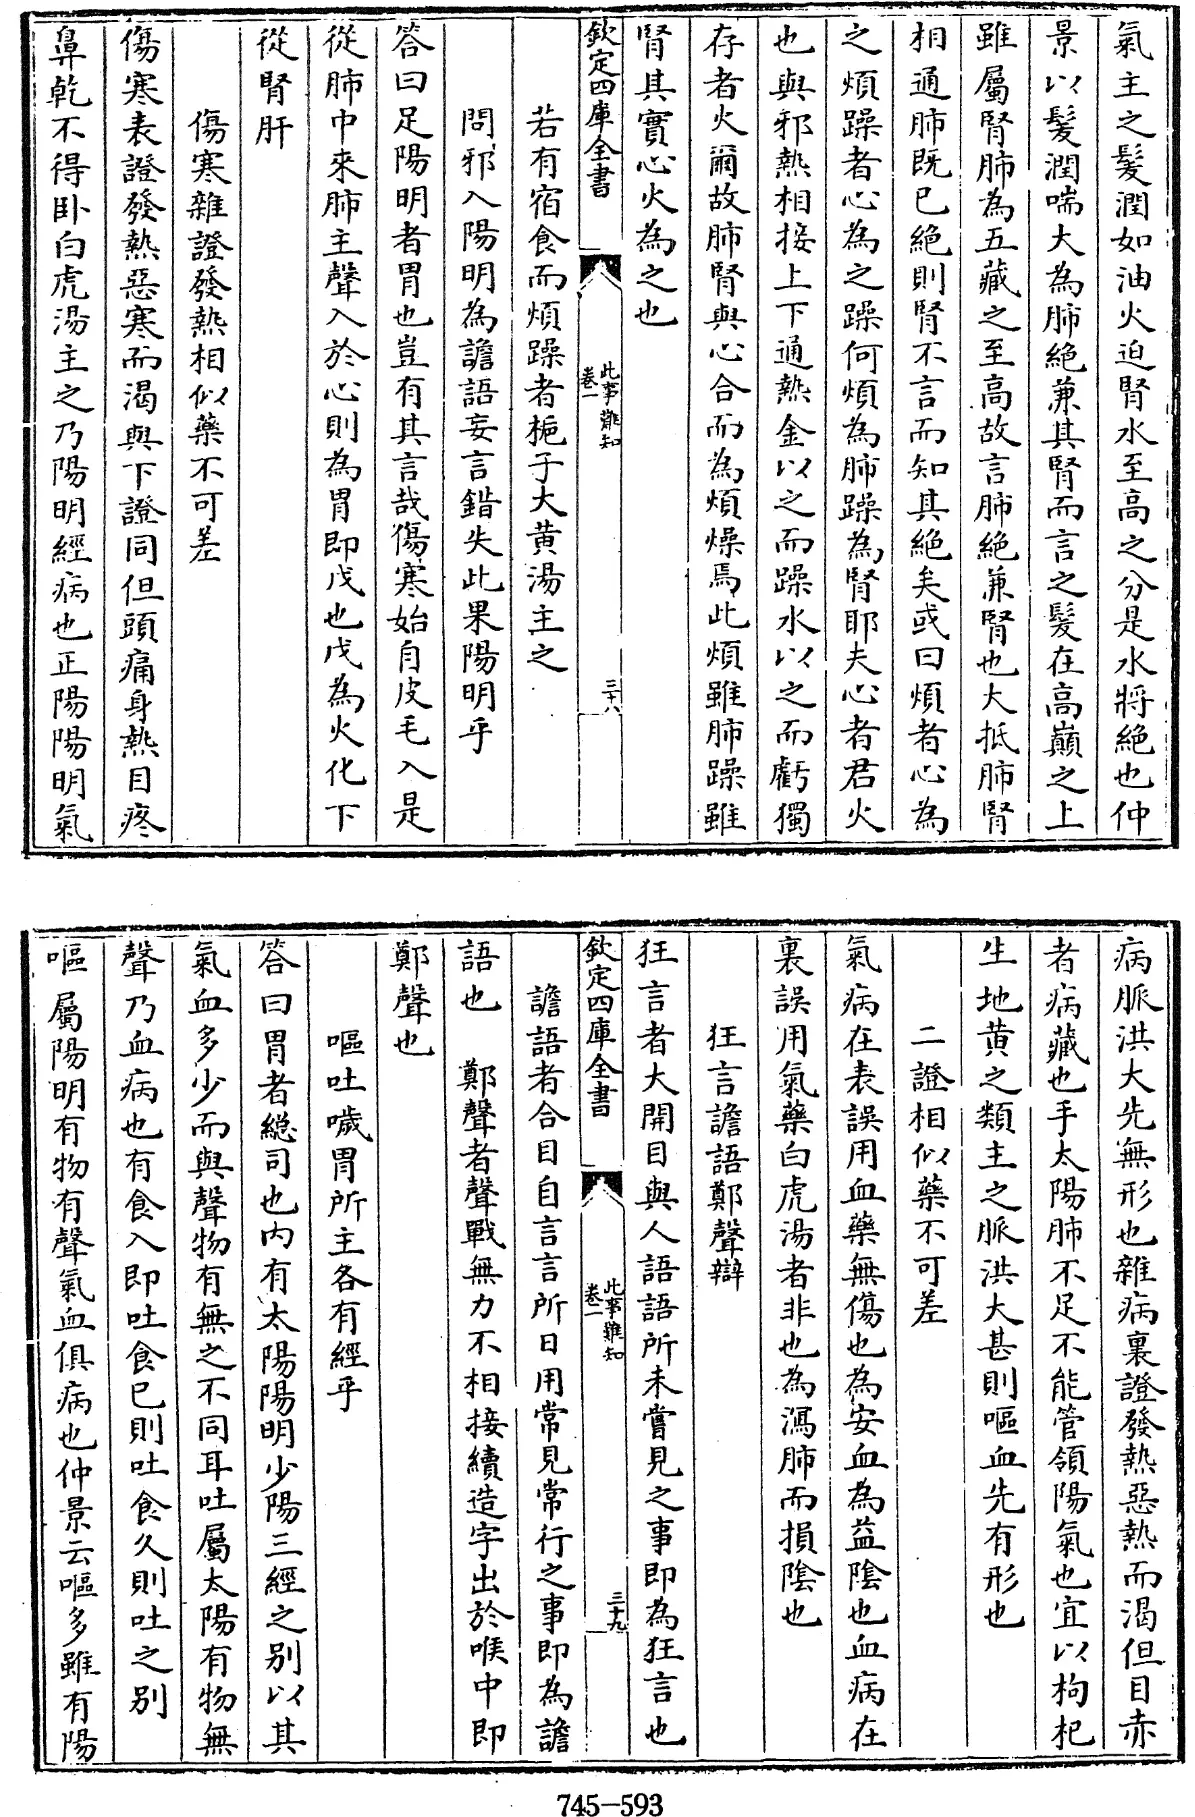 氣主之髮潤如油火迫腎水至高之分是水將絶也仲
景以髮潤喘大為肺絶兼其腎而言之髮在高巔之上
雖屬腎肺為五藏之至高故言肺絶兼腎也大抵肺腎
相通肺既已絶則腎不言而知其絶矣或曰煩者心為
之煩躁者心為之躁何煩為肺躁為腎耶夫心者君火
也與邪熱相接上下通熱金以之而躁水以之而虧獨
存者火爾故肺腎與心合而為煩燥焉此煩雖肺躁雖
腎其實心火為之也
欽定四庫全書
此事難知
卷一
三十八
若有宿食而煩躁者梔子大黄湯主之
問邪入陽明為譫語妄言錯失此果陽明乎
答曰足陽明者胃也豈有其言哉傷寒始自皮毛入是
從肺中來肺主聲入於心則為胃即戊也戊為火化下
從腎肝
傷寒雜證發熱相似藥不可差
傷寒表證發熱惡寒而渴與下證同但頭痛身熱目疼
鼻乾不得臥白虎湯主之乃陽明經病也正陽陽明氣
病脈洪大先無形也雜病裏證發熱惡熱而渴但目赤
者病藏也手太陽肺不足不能管領陽氣也宜以枸杞
生地黄之類主之脈洪大甚則嘔血先有形也
二證相似藥不可差
氣病在表誤用血藥無傷也為安血為益陰也血病在
裏誤用氣藥白虎湯者非也為瀉肺而損陰也
狂言譫語鄭聲辯
狂言者大開目與人語語所未嘗見之事即為狂言也
欽定四庫全書
此事難知
卷一
三十九
譫語者合目自言言所日用常見常行之事即為譫
語也　鄭聲者聲戰無力不相接續造字出於喉中即
鄭聲也
嘔吐噦胃所主各有經乎
答曰胃者總司也内有太陽陽明少陽三經之别以其
氣血多少而與聲物有無之不同耳吐屬太陽有物無
聲乃血病也有食入即吐食已則吐食久則吐之别
嘔屬陽明有物有聲氣血俱病也仲景云嘔多雖有陽
745-593